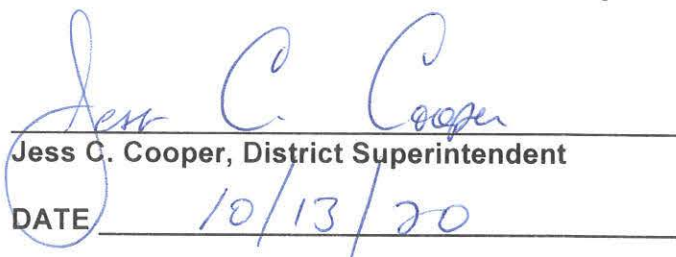 Jess C. Cooper
Jess C. Cooper, District Superintendent
DATE 10/13/20